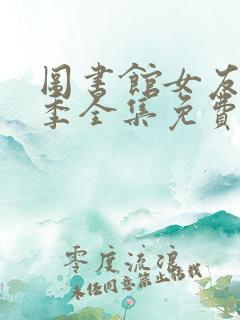 圖書館女友
季全集免費
零度流浪
未经同意禁止转载